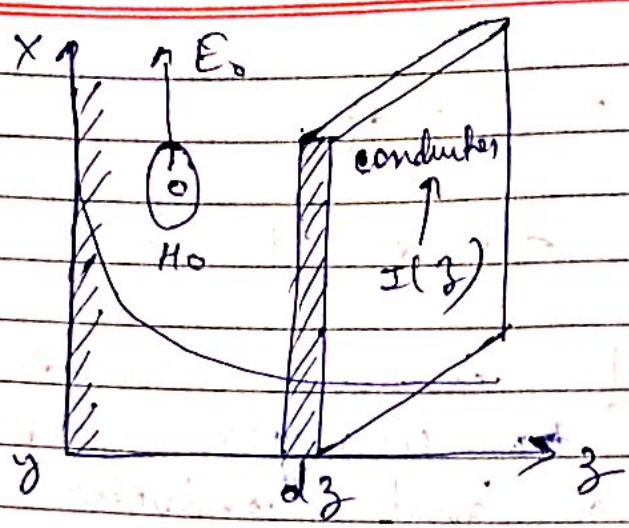 X E₀
conductor
H₀
I(z)
y dz z